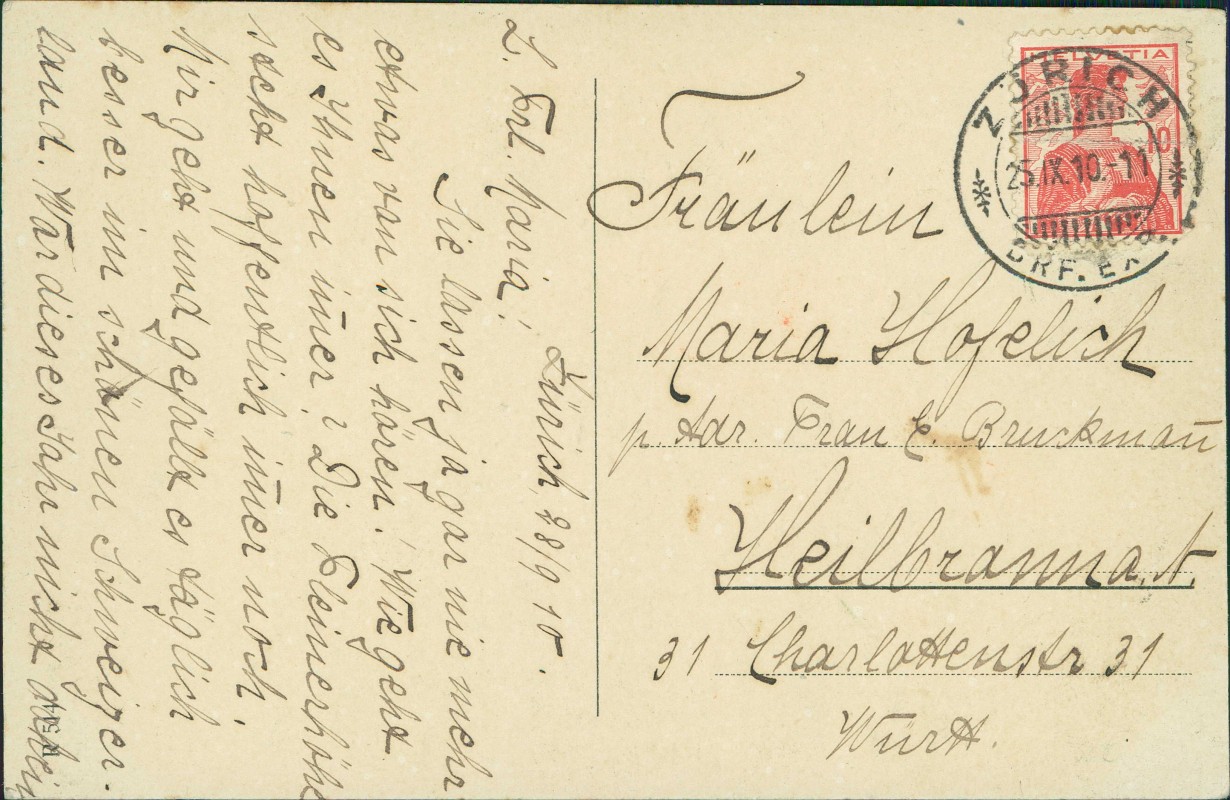 Zürich, 28/9 10.
L. Frl. Maria!
Sie lassen ja gar nie mehr
etwas von sich hören! Wie geht
es Ihnen im̅er? Die Steinerhöhe
steht hoffentlich im̅er noch.
Mir geht und gefällt es täglich
besser im schönen Schweizer-
land. War dieses Jahr nicht
HELVETIA
10
ZÜRICH
25.IX.10.-11
BRF. EXP.
Fräulein
Maria Hofelich
p. Adr. Frau E. Bruckman̅
Heilbronn a. N.
31 Charlottenstr 31
Württ.